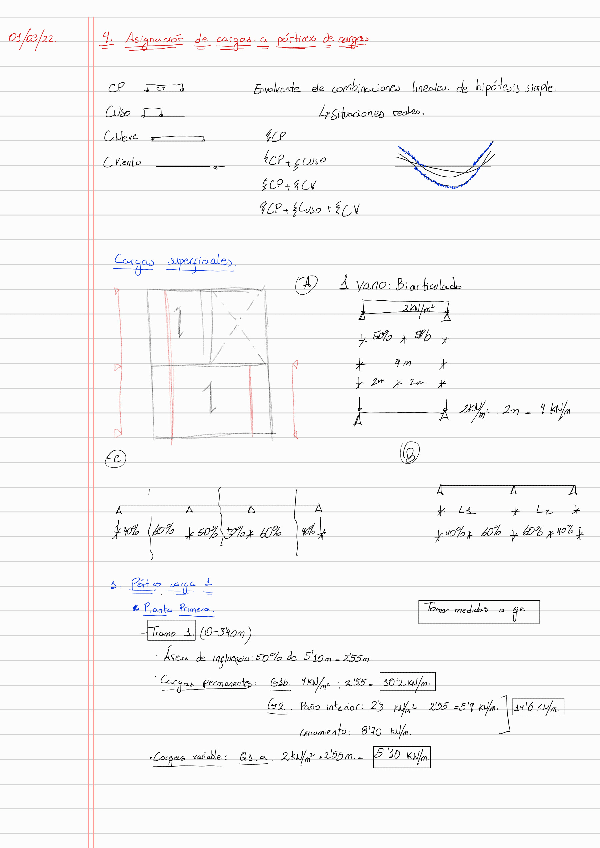 01/03/22.
9. Asignación de cargas a pórticos de cargas
CP
Envolvente de combinaciones lineales de hipótesis simple
C.Uso
↳ Situaciones reales.
C.Nieve
ξCP
C.Viento
ξCP + ξCUSO
ξCP + ξCV
ξCP + ξCUSO + ξCV
Cargas superficiales.
A
1 vano: Biarticulado
2KN/m²
50% 50%
4 m
2m 2m
2KN/m · 2m = 4 KN/m
C
B
L1 L2
40% 60% 50% 50% 60% 40%
40% 60% 60% 40%
1. Pórtico carga 1
Planta Primera.
Tomar medidas a eje
- Tramo 1 (0-3'40m)
· Área de influencia: 50% de 5'10m = 2'55m
· Cargas permanentes: G1b 4KN/m² · 2'55 = 10'2 KN/m.
G2. Paso interior: 2'3 KN/m² 2'55 = 5'9 KN/m.
14'6 KN/m.
cerramiento: 8'70 KN/m.
· Cargas variable: Q1.a. 2KN/m² · 2'55m = 5'10 KN/m.